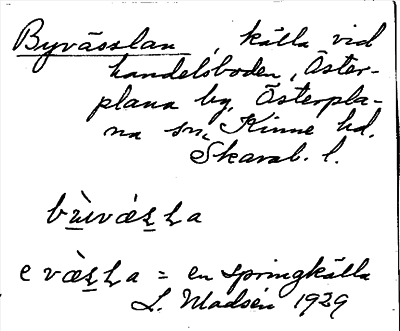 Byvässlan, källa vid
handelsboden, Öster-
plana by, Österpla-
na sn, Kinne hd.
Skarab. l.
e = en springkälla
L. Madsén 1929